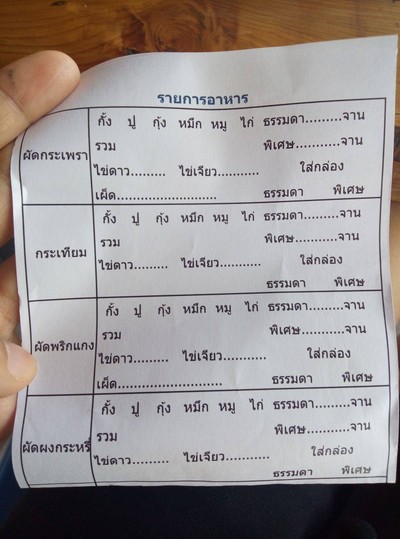 รายการอาหาร
ผัดกระเพรา
กั้ง ปู กุ้ง หมึก หมู ไก่ ธรรมดา.........จาน
รวม พิเศษ...........จาน
ไข่ดาว......... ไข่เจียว........... ใส่กล่อง
เผ็ด.......................... ธรรมดา พิเศษ
กระเทียม
กั้ง ปู กุ้ง หมึก หมู ไก่ ธรรมดา.........จาน
รวม พิเศษ...........จาน
ไข่ดาว......... ไข่เจียว........... ใส่กล่อง
ธรรมดา พิเศษ
ผัดพริกแกง
กั้ง ปู กุ้ง หมึก หมู ไก่ ธรรมดา.........จาน
รวม พิเศษ...........จาน
ไข่ดาว......... ไข่เจียว........... ใส่กล่อง
เผ็ด........................... ธรรมดา พิเศษ
ผัดผงกระหรี่
กั้ง ปู กุ้ง หมึก หมู ไก่ ธรรมดา.........จาน
รวม พิเศษ...........จาน
ไข่ดาว......... ไข่เจียว........... ใส่กล่อง
ธรรมดา พิเศษ